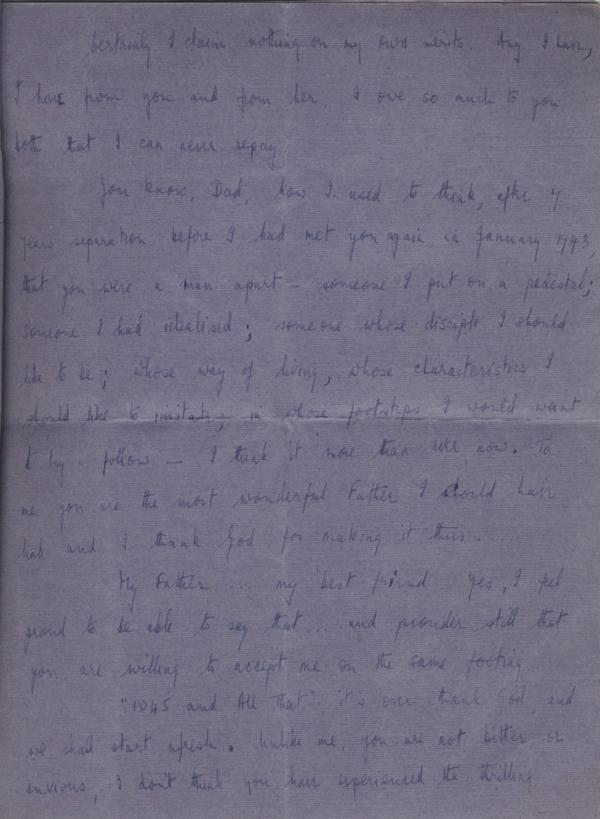 Certainly I claim nothing on my own merits. Any I have,
I have from you and from her. I owe so much to you
both that I can never repay
You know, Dad, how I used to think, after 4
years separation before I had met you again in January 1943,
that you were a man apart — someone I put on a pedestal;
someone I had idealised; someone whose disciple I should
like to be; whose way of living, whose characteristics I
should like to imitate; in whose footsteps I would want
to try & follow — I think it more than ever now. To
me you are the most wonderful Father I should have
had and I thank God for making it thus...
My Father .... my best friend Yes, I feel
proud to be able to say that... and prouder still that
you are willing to accept me on the same footing
"1945 and All That": it's over thank God, and
we shall start afresh. Unlike me, you are not bitter or
envious, I don't think you have experienced the thrilling